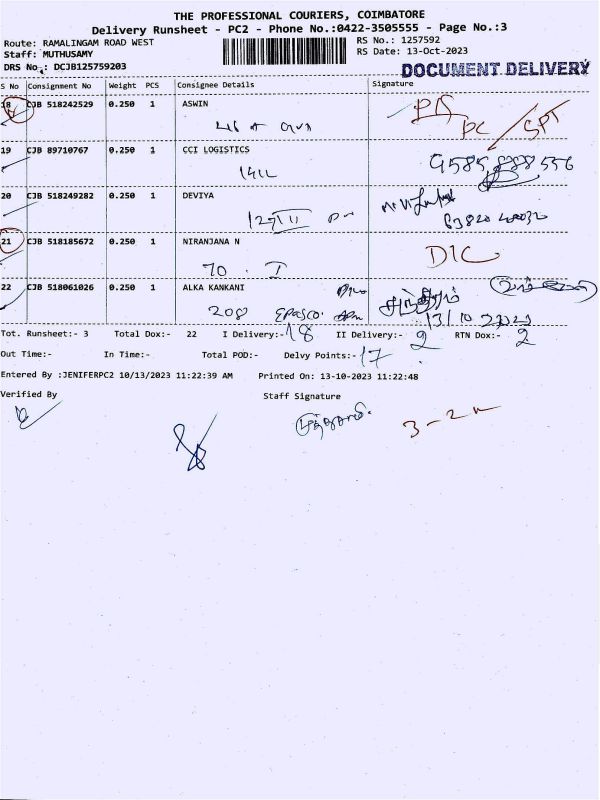 THE PROFESSIONAL COURIERS, COIMBATORE
Delivery Runsheet - PC2 - Phone No.:0422-3505555 - Page No.:3
Route: RAMALINGAM ROAD WEST RS No.: 1257592
Staff: MUTHUSAMY RS Date: 13-Oct-2023
DRS No.: DCJB125759203 DOCUMENT DELIVERY
S No Consignment No Weight PCS Consignee Details Signature
18 CJB 518242529 0.250 1 ASWIN
PC / SPT
19 CJB 89710767 0.250 1 CCI LOGISTICS
20 CJB 518249282 0.250 1 DEVIYA
21 CJB 518185672 0.250 1 NIRANJANA N D1C
70 . I
22 CJB 518061026 0.250 1 ALKA KANKANI
208
13/10 2023
Tot. Runsheet:- 3 Total Dox:- 22 I Delivery:- 18 II Delivery:- 2 RTN Dox:- 2
Out Time:- In Time:- Total POD:- Delvy Points:- 17
Entered By :JENIFERPC2 10/13/2023 11:22:39 AM Printed On: 13-10-2023 11:22:48
Verified By Staff Signature